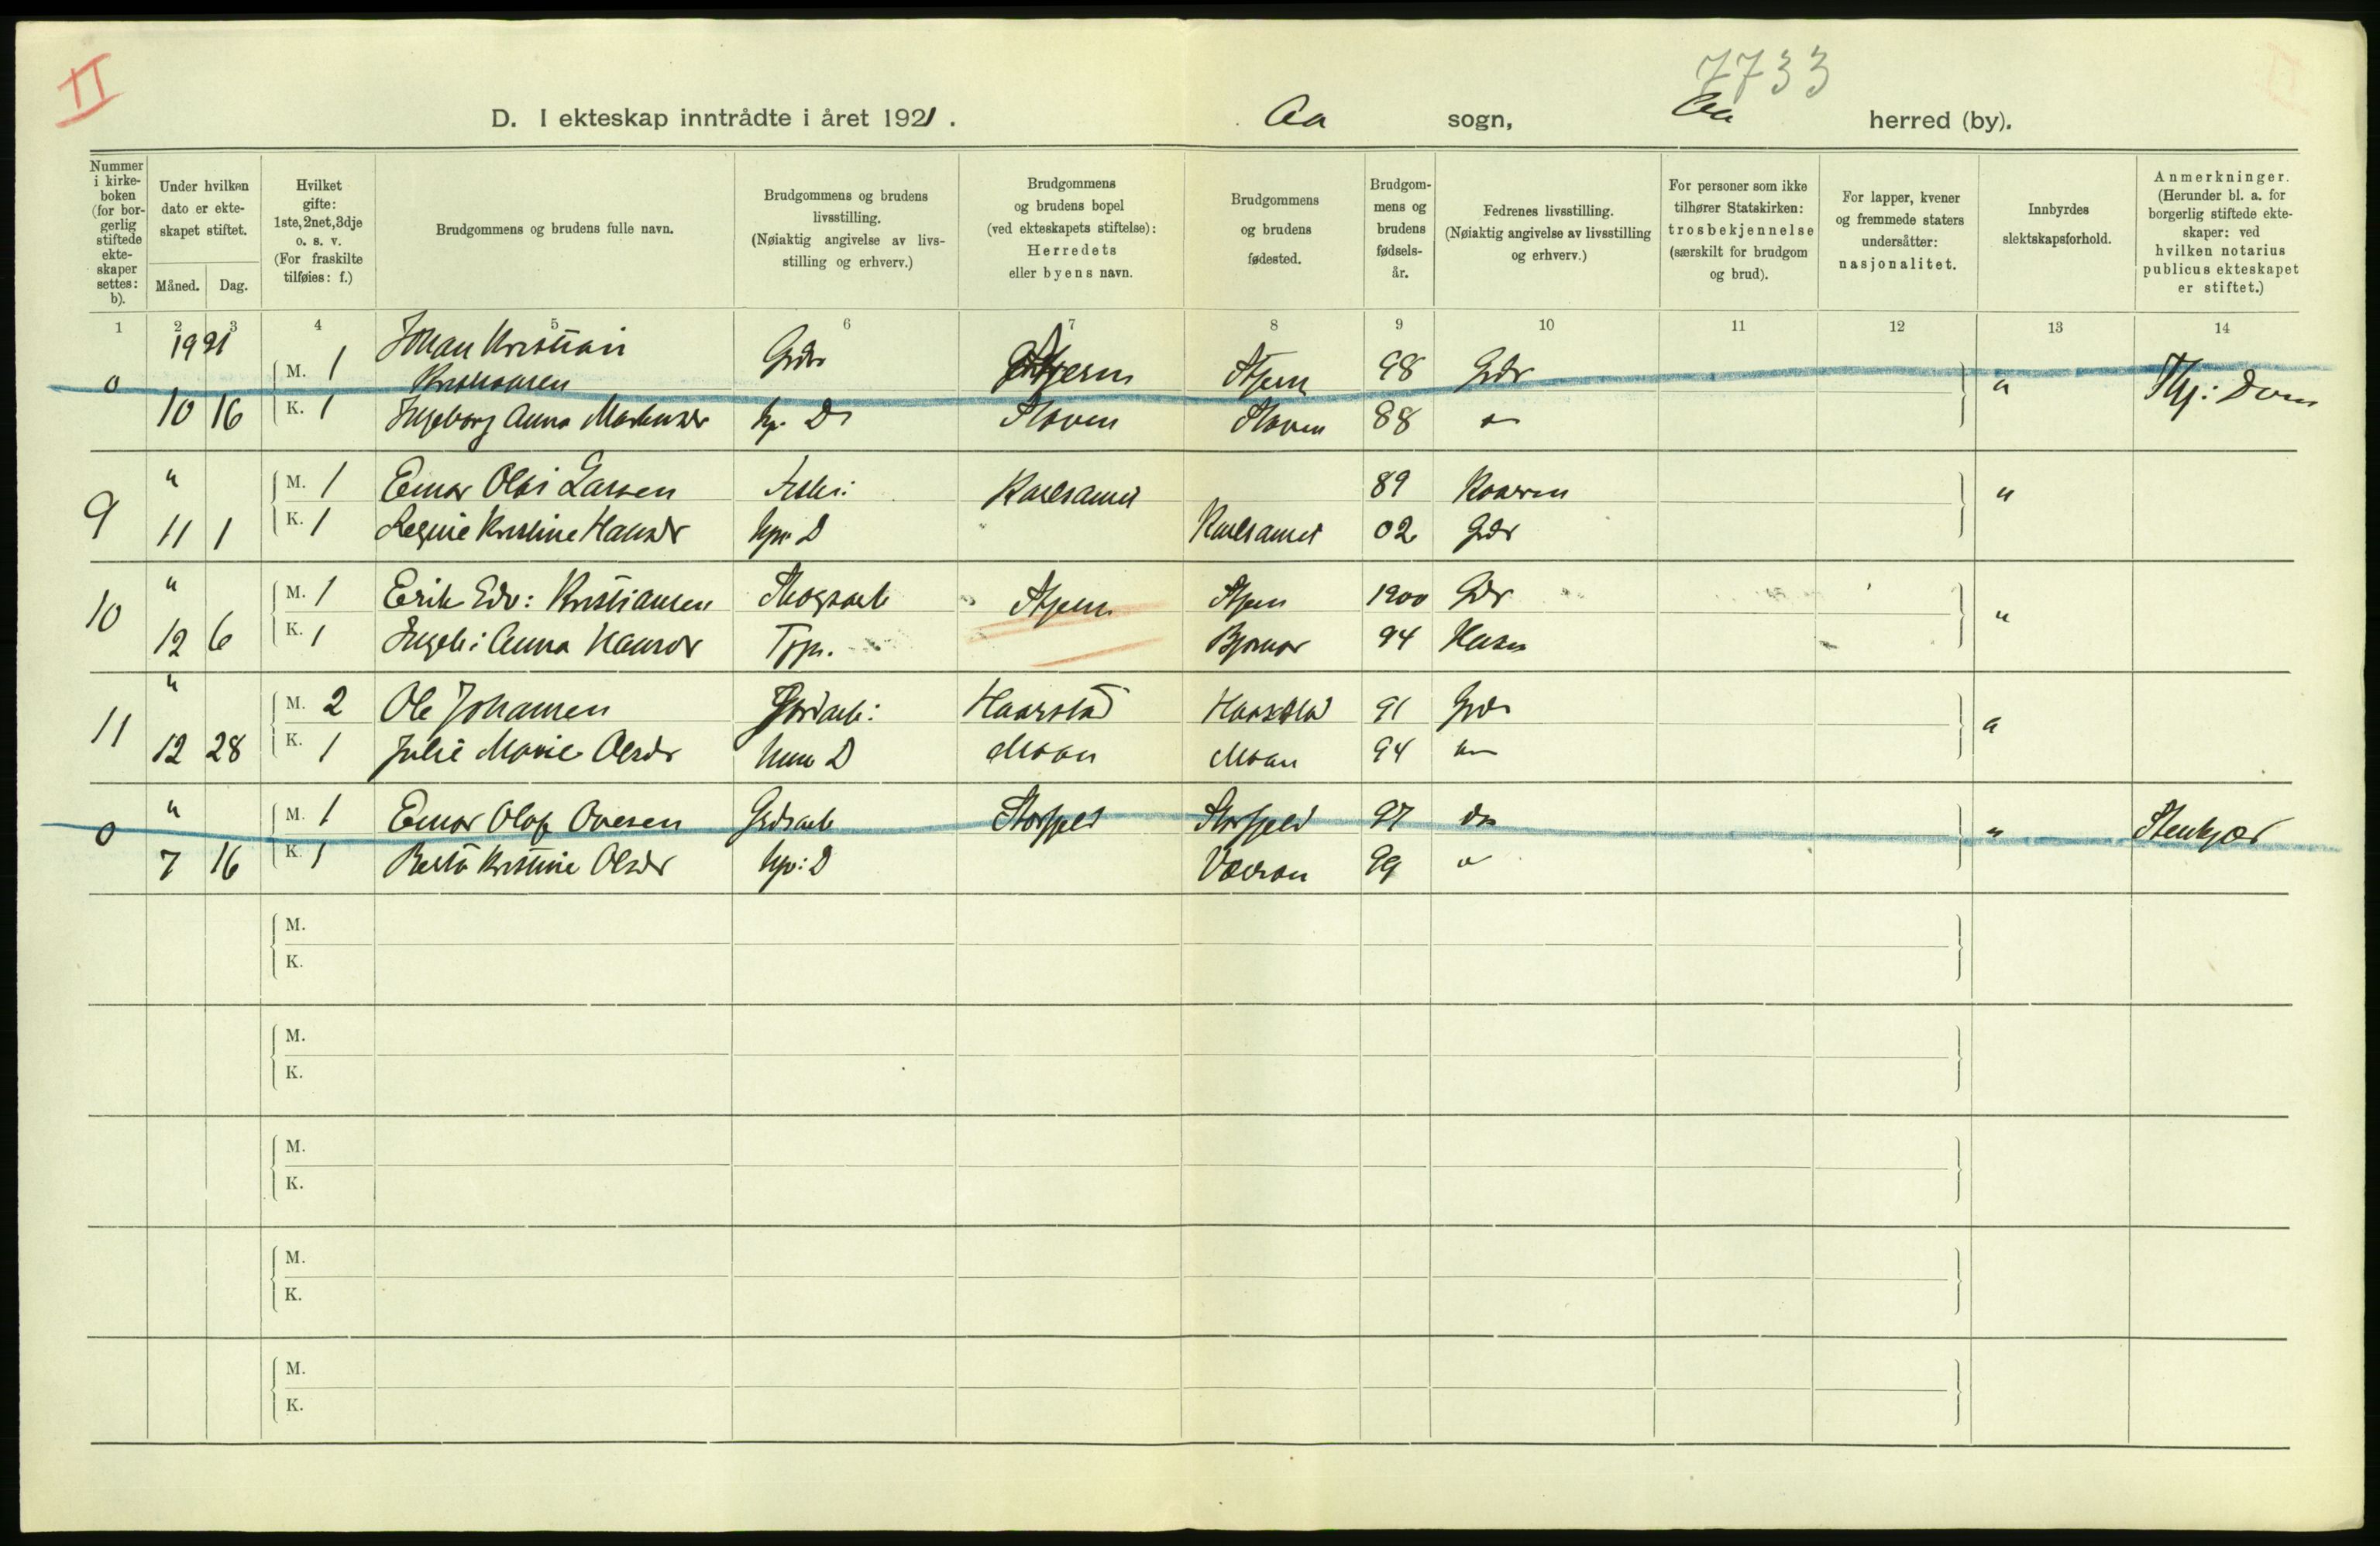 II
7733
D. I ekteskap inntrådte i året 1921. Aa sogn, Aa herred (by).
Nummer i kirke-boken (for bor-gerlig stiftede ekte-skaper settes: b).
Under hvilken dato er ekte-skapet stiftet.
Måned. Dag.
Hvilket gifte: 1ste, 2net, 3dje o. s. v. (For fraskilte tilføies: f.)
Brudgommens og brudens fulle navn.
Brudgommens og brudens livsstilling. (Nøiaktig angivelse av livs-stilling og erhverv.)
Brudgommens og brudens bopel (ved ekteskapets stiftelse): Herredets eller byens navn.
Brudgommens og brudens fødested.
Brudgom-mens og brudens fødsels-år.
Fedrenes livsstilling. (Nøiaktig angivelse av livsstilling og erhverv.)
For personer som ikke tilhører Statskirken: trosbekjennelse (særskilt for brudgom og brud).
For lapper, kvener og fremmede staters undersåtter: nasjonalitet.
Innbyrdes slektskapsforhold.
Anmerkninger. (Herunder bl. a. for borgerlig stiftede ekte-skaper: ved hvilken notarius publicus ekteskapet er stiftet.)
1 2 3 4 5 6 7 8 9 10 11 12 13 14
1921
0 M. 1 Johan Kristian Kristiansen Grdr Stjern 98 Grdr "
10 16 K. 1 Ingeborg Anna Martinsdr 88 "
9 " M. 1 Einar Olai Larsen Karlsamet 89 "
11 1 K. 1 Regine Kristine Hansdr Karlsamet 02 Gdr
10 " M. 1 Erik Edv: Kristiansen Skogsarb Stjern Stjern 1900 Gdr "
12 6 K. 1 Ingeb: Anna Hansdr Tjp. 94 Husm
11 " M. 2 Ole Johansen Gårdarb: Haarstad Haarstad 91 Grdr "
12 28 K. 1 Julie Marie Olsdr Moan Moan 94
0 " M. 1 Einar Olaf Ovesen Grdsarb Storfjeld Storfjeld 97 " Stenkjær
7 16 K. 1 Berta Kristine Olsdr 99 "
M.
K.
M.
K.
M.
K.
M.
K.
M.
K.